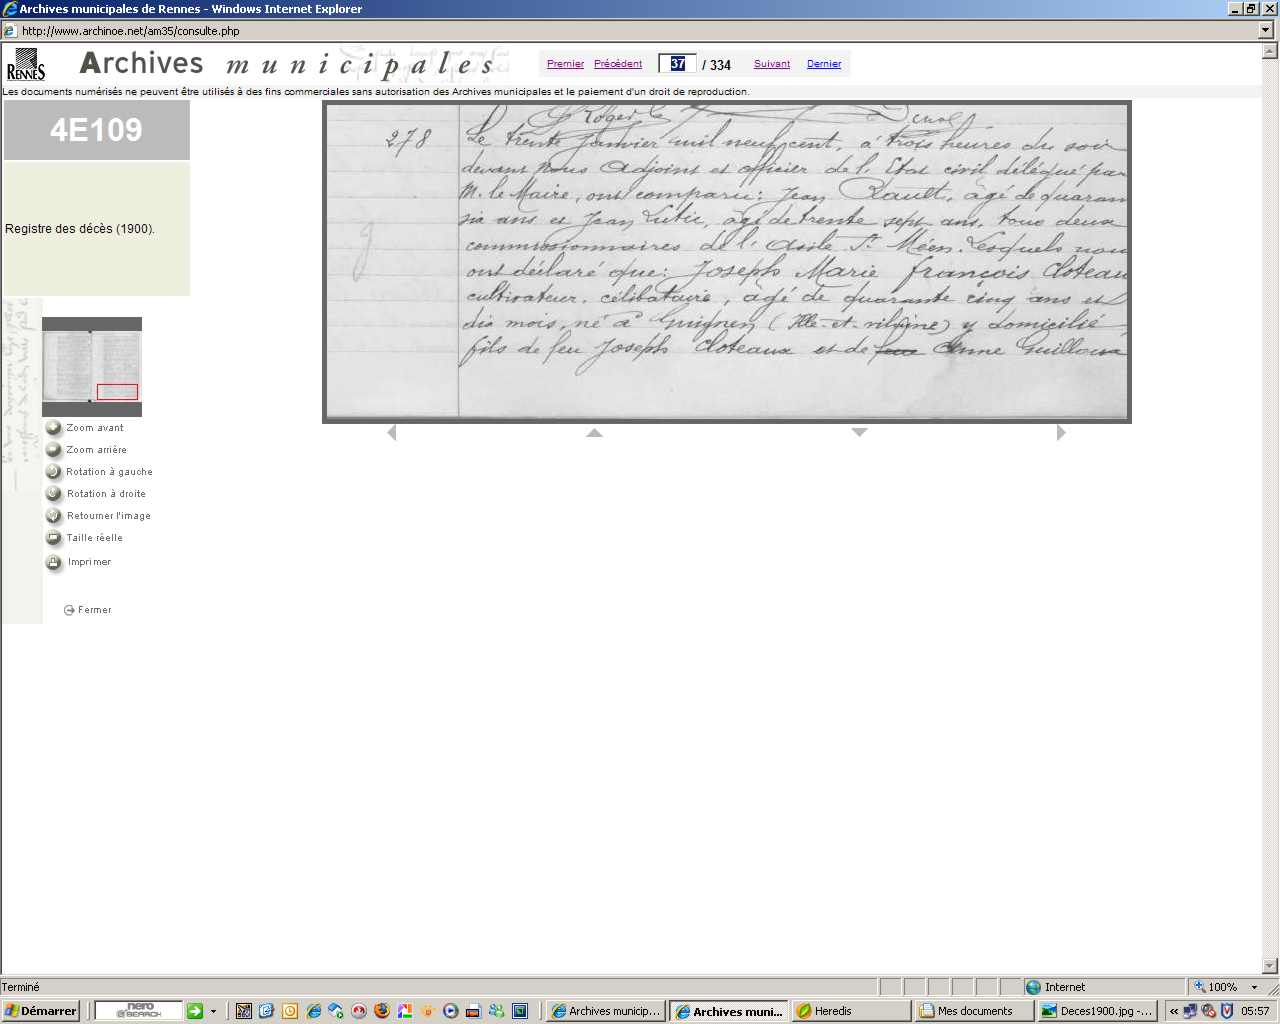 Archives municipales de Rennes - Windows Internet Explorer
http://www.archinoe.net/am35/consulte.php
RENNES
Archives municipales
Premier Précédent 37 / 334 Suivant Dernier
Les documents numérisés ne peuvent être utilisés à des fins commerciales sans autorisation des Archives municipales et le paiement d'un droit de reproduction.
4E109
Registre des décès (1900).
Roger
278
Le trente Janvier mil neuf cent, à trois heures du soir
devant nous Adjoint et officier de l'Etat civil délégué par
M. le Maire, ont comparu: Jean Rault, âgé de quaran
six ans et Jean Lutic, âgé de trente sept ans, tous deux
commissionnaires de l'Asile St Méen. Lesquels nous
ont déclaré que: Joseph Marie françois Cloteau
cultivateur, célibataire, âgé de quarante cinq ans et
dix mois, né à Guignen (Ille-et-vilaine) y domicilié
fils de feu Joseph Cloteaux et de feue Anne Guilloux
Zoom avant
Zoom arrière
Rotation à gauche
Rotation à droite
Retourner l'image
Taille réelle
Imprimer
Fermer
Terminé
Internet
100%
Démarrer
nero
SEARCH
Archives municip...
Archives muni...
Heredis
Mes documents
Deces1900.jpg -...
05:57